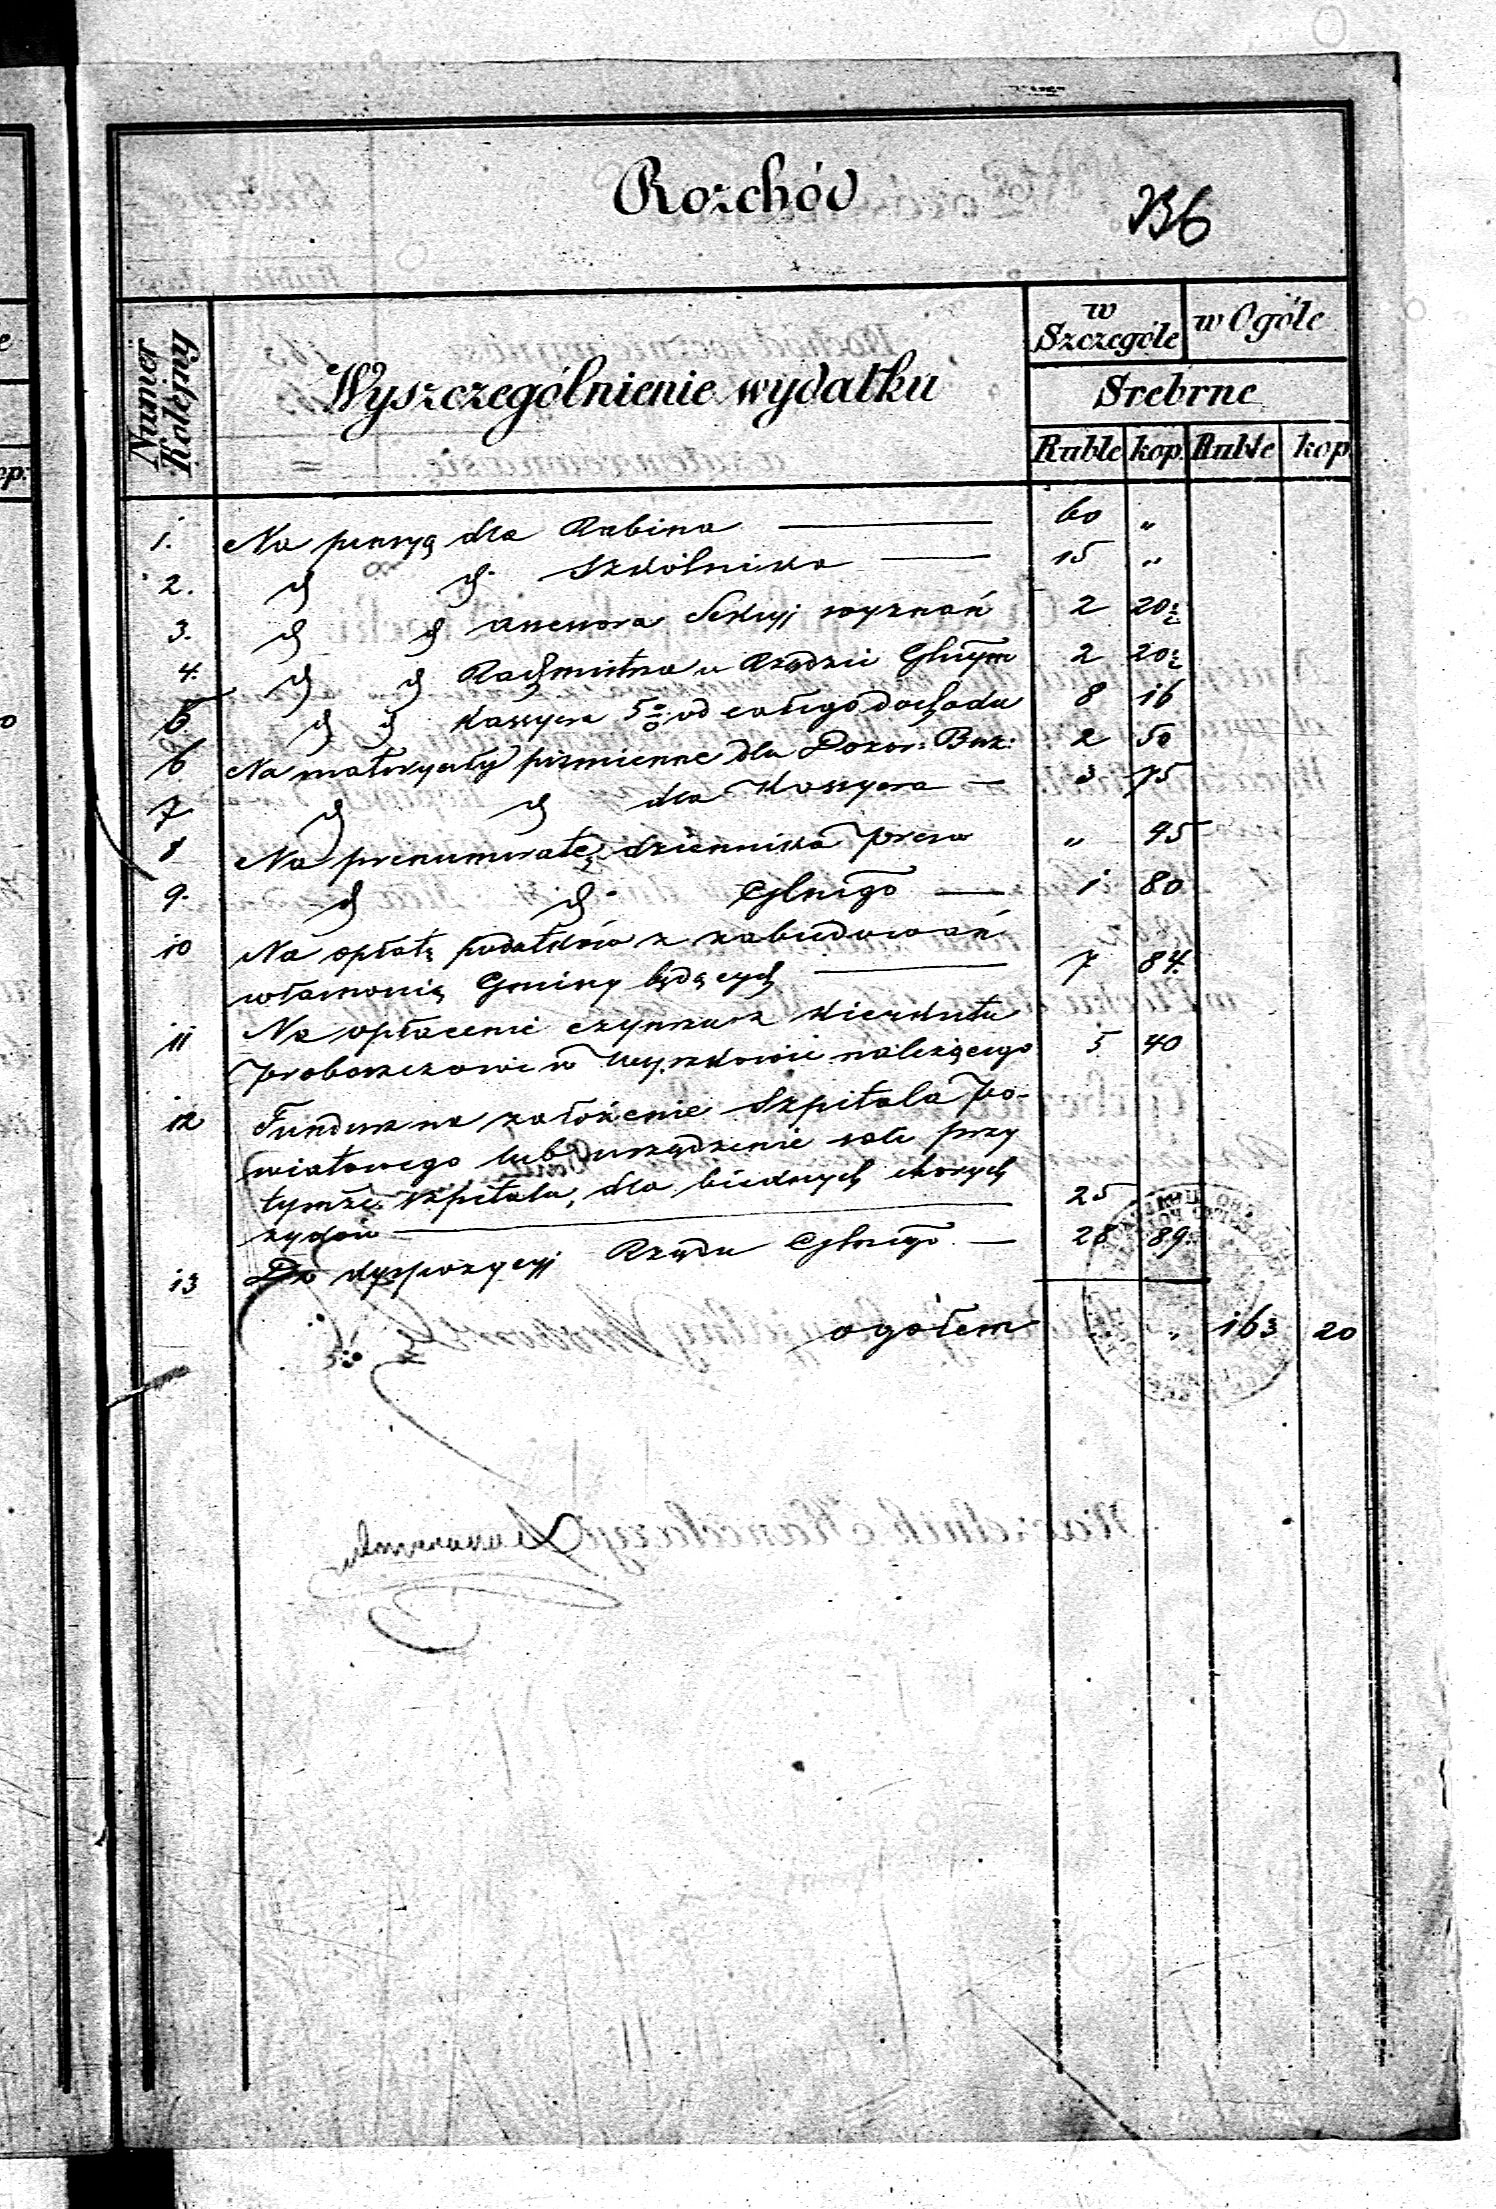 Rozchód
136
Numer Kolejny
Wyszczególnienie wydatku
w Szczególe
w Ogóle
Srebrne
Ruble kop. Ruble kop.
1. Na pensyą dla Rabina 60 "
2. d d. Szkólnika 15 "
3. d d Assessora Sekcyj wyznań 2 20½
4. d d Rachmistrza w Rządzie Glnym 2 20½
5. d d Kassyera 5% od całego dochodu 8 16
6 Na materyały piśmienne dla Dozor: Buz: 2 50
7 d d dla Kassyera 3 75
8 Na prenumeratę dziennika Praw " 95
9. d d. Glnego 1 80
10 Na opłatę podatków z zabudowań
własnością Gminy będących 7 84.
11 Na opłacenie czynszu z kierkutu
Proboszczowi w Wyszkowie należącego 5 40
12 Fundusz na założenie Szpitala Po-
wiatowego lub urządzenie sali przy
tymże szpitalu, dla biednych chorych
żydów 25
13 Do dyspozycyj Rządu Glnego 28 89.
ogółem " 163 20